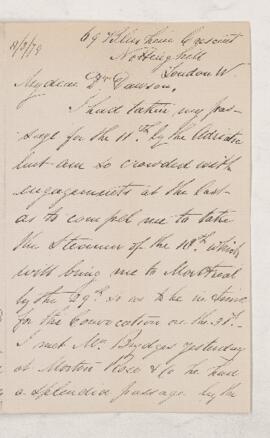 69 Elsham Crescent
Notting hill
London W.
My dear Dr Dawson,
I had taken my pas-
sage for the 11th by the Adriatic
but am so crowded with
engagements at the last
as to compel me to take
the Steamer of the 18th which
will bring me to Montreal
by the 29th so as to be in time
for the Convocation on the 31st.
I met Mr. Brydges yesterday
at Morton Rose & Co he had
a splendid passage by the